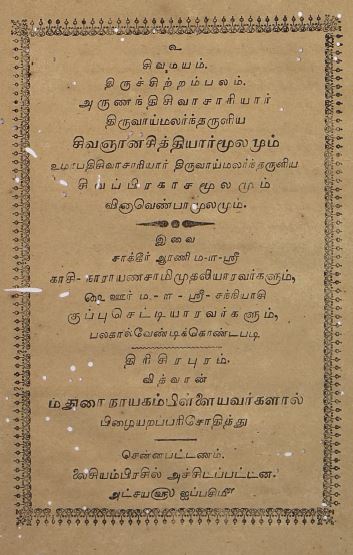 உ
சிவமயம்.
திருச்சிற்றம்பலம்.
அருணந்திசிவாசாரியார்
திருவாய்மலர்ந்தருளிய
சிவஞானசித்தியார்மூலமும்
உமாபதிசிவாசாரியார் திருவாய்மலர்ந்தருளிய
சிவப்பிரகாசமூலமும்
வினாவெண்பாமூலமும்.
இவை
ஆரணி ம-ள-ஸ்ரீ
காசி-நாராயணசாமிமுதலியாரவர்களும்,
ஊர் ம-ள-ஸ்ரீ-சந்நியாசி
குப்புசெட்டியாரவர்களும்,
பலகால்வேண்டிக்கொண்டபடி
திரிசிரபுரம்.
வித்வான்
நாயகம்பிள்ளையவர்களால்
பிழையறப்பரிசோதித்து
சென்னபட்டணம்.
லைசியம்பிரசில் அச்சிடப்பட்டன.
அட்சய௵ ஐப்பசி௴